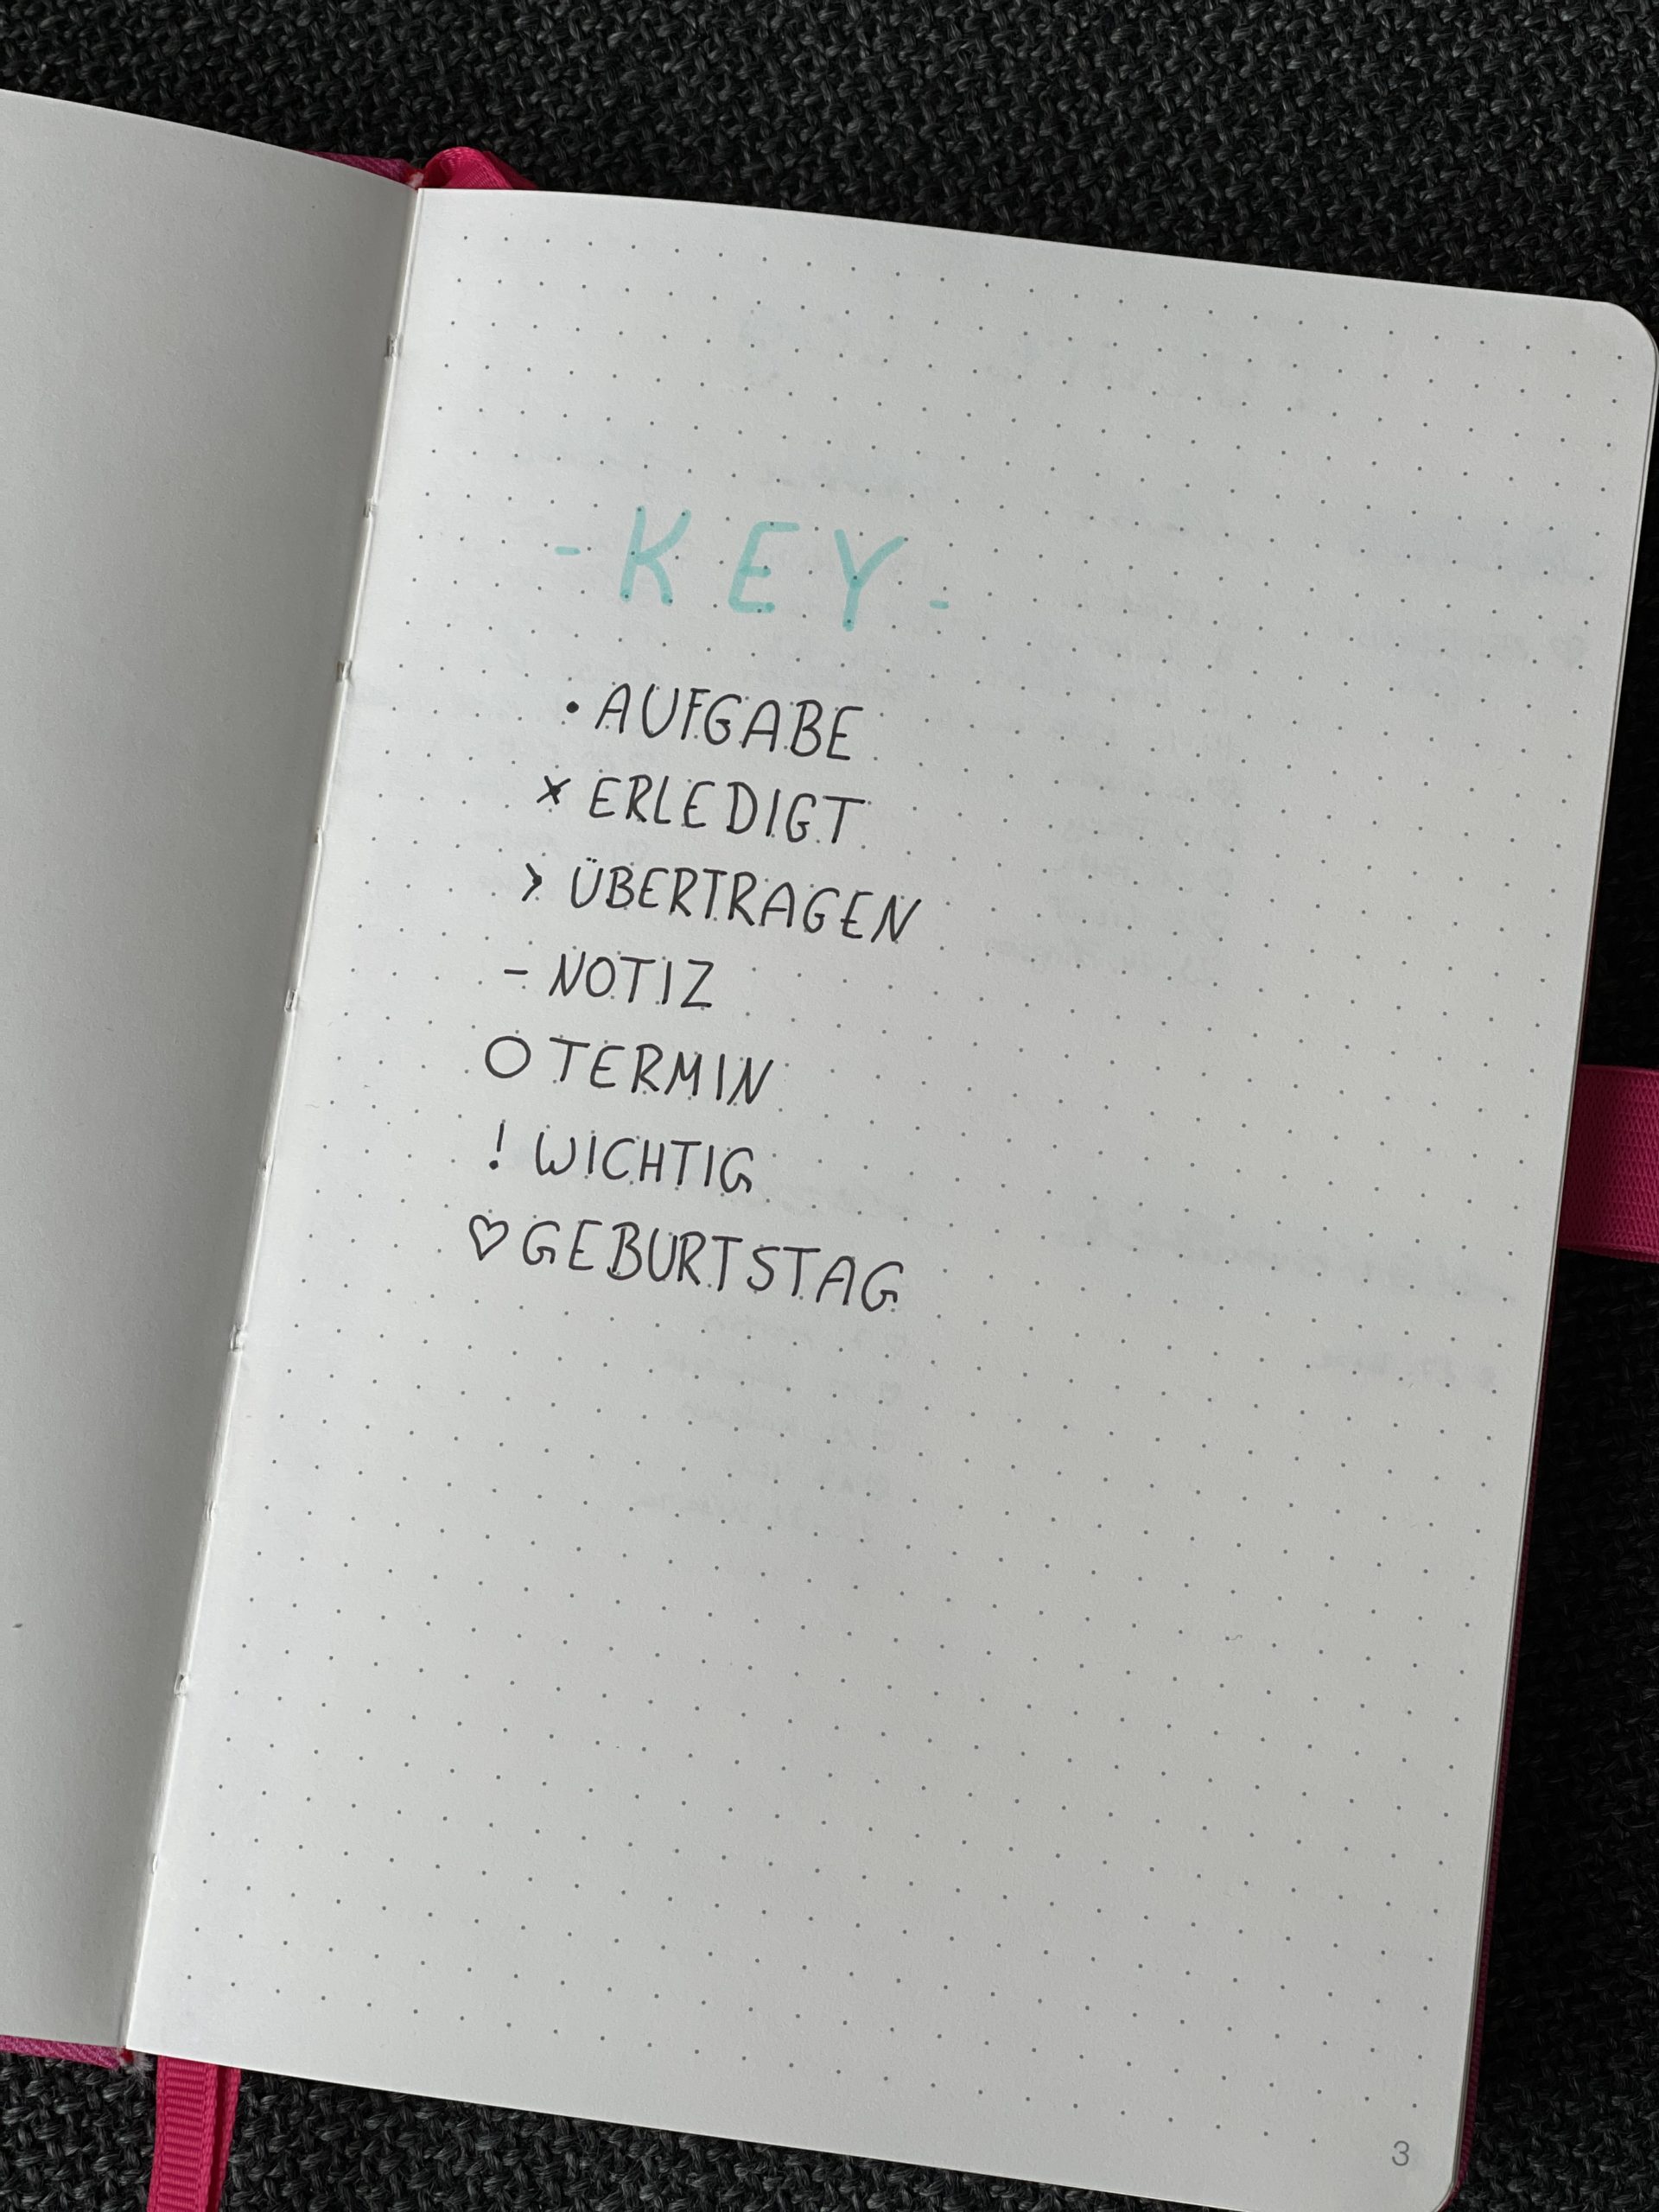 - KEY -
• AUFGABE
× ERLEDIGT
> ÜBERTRAGEN
- NOTIZ
○ TERMIN
! WICHTIG
♡ GEBURTSTAG
3